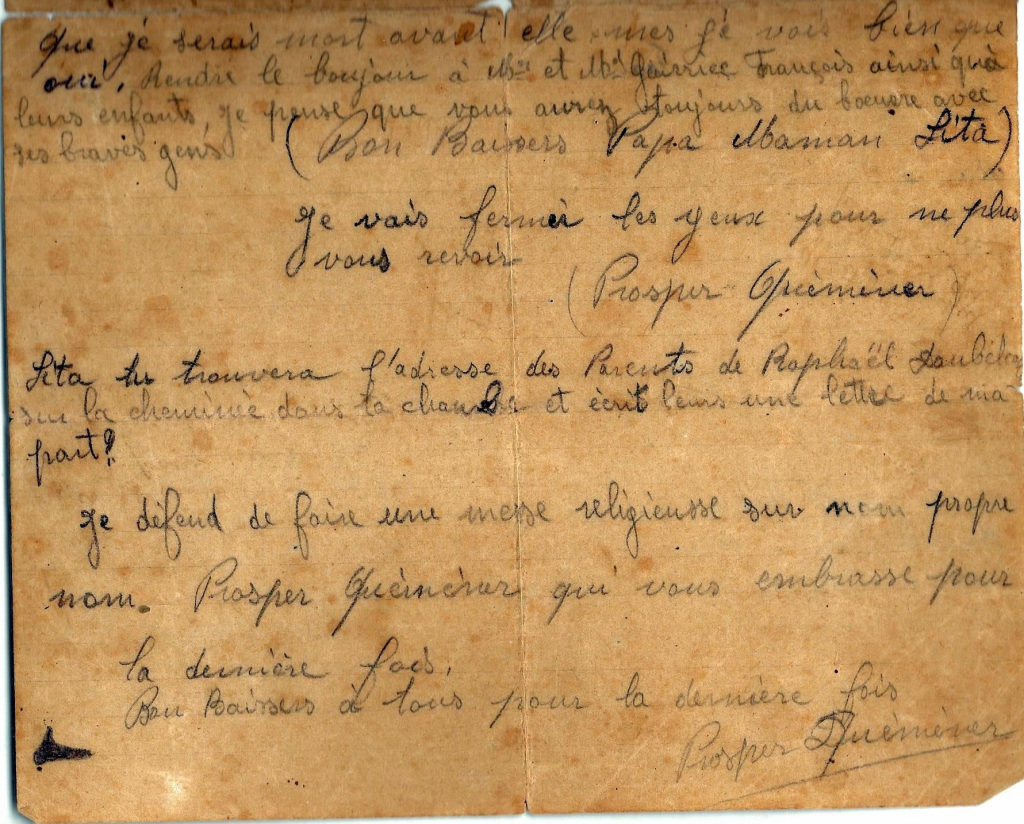 que je serais mort avant elle mes je vois bien que
oui, Rendre le boujour à Mme et Mr François ainsi qu'à
leurs enfants, je pense que vous aurez toujours du boeure avec
ses braves gens, (Bon Baissers Papa Maman Lita)
Je vais fermer les yeux pour ne plus
vous revoir
(Prosper Quéméner)
Lita tu trouvera l'adresse des Parents de Raphaël
sur la cheminée dans ta chambre et écrit leurs une lettre de ma
part?
Je défend de faire une messe religieusse sur nom propre
nom. Prosper Quéméner qui vous embrasse pour
la dernière fois.
Bon Baissers à tous pour la dernière fois
Prosper Quéméner